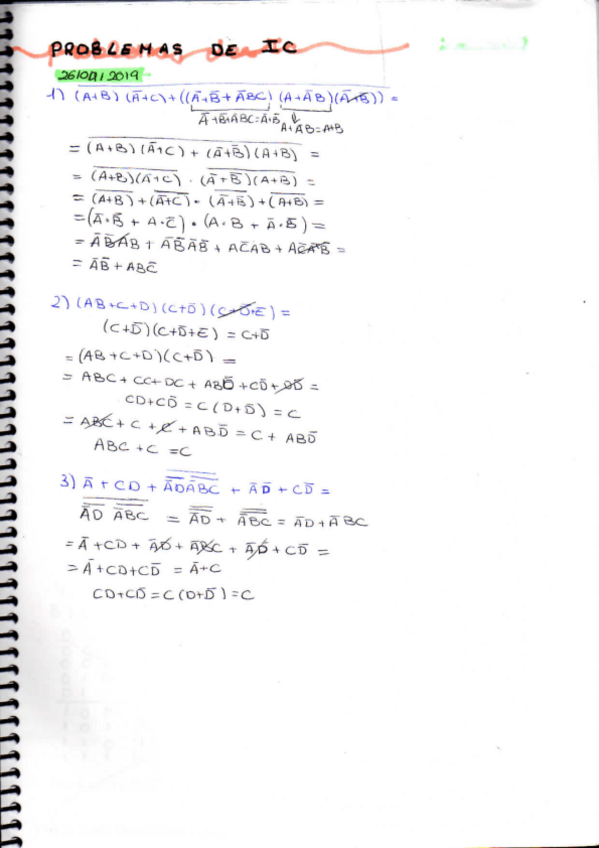 PROBLEMAS DE IC
26/09/2019
1) (A+B) (Ā+C) + ((Ā+B̄+ĀBC) (A+ĀB) (Ā+B̄)) =
Ā+B̄+ĀBC=Ā+B̄
A+ĀB=A+B
= (A+B) (Ā+C) + (Ā+B̄) (A+B) =
= (A+B)(Ā+C) · (Ā+B̄)(A+B) =
= (A+B) + (Ā+C) · (Ā+B̄) + (A+B) =
= (Ā·B̄ + A·C̄) · (A·B + Ā·B̄) =
= ĀB̄AB + ĀB̄ĀB̄ + AC̄AB + AC̄ĀB̄ =
= ĀB̄ + ABC̄
2) (AB+C+D)(C+D̄)(C+D̄+E) =
(C+D̄)(C+D̄+E) = C+D̄
= (AB+C+D)(C+D̄) =
= ABC + CC + DC + ABD̄ + CD̄ + DD̄ =
CD+CD̄ = C(D+D̄) = C
= ABC + C + C + ABD̄ = C + ABD̄
ABC + C = C
3) Ā + CD + ĀD ĀBC + ĀD̄ + CD̄ =
ĀD ĀBC = ĀD + ĀBC = ĀD + ĀBC
= Ā + CD + ĀD + ĀBC + ĀD̄ + CD̄ =
= Ā + CD + CD̄ = Ā + C
CD+CD̄ = C(D+D̄) = C